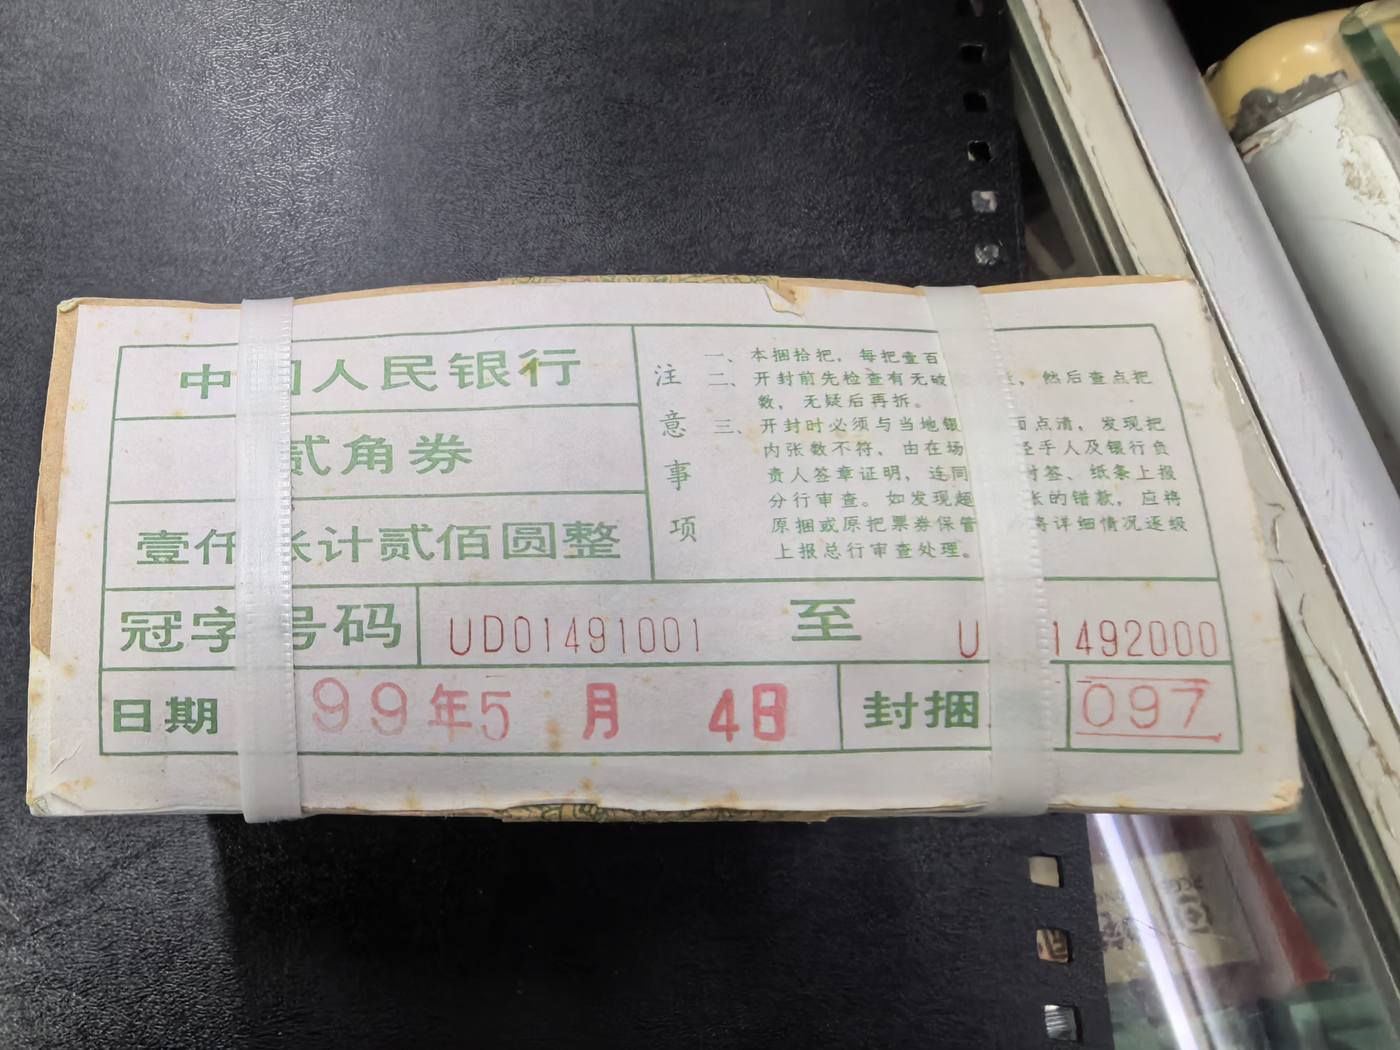 中 人民银行
贰角券
壹仟 张计贰佰圆整
注意事项
一、本捆拾把，每把壹百
二、开封前先检查有无破 ，然后查点把
数，无疑后再拆。
三、开封时必须与当地银 面点清，发现把
内张数不符，由在场 经手人及银行负
责人签章证明，连同 封签、纸条上报
分行审查。如发现超 张的错款，应将
原捆或原把票券保管 将详细情况逐级
上报总行审查处理。
冠字号码 UD01491001 至 U 1492000
日期 99年5月4日 封捆 097